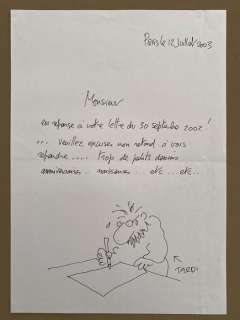 Paris le 12 Juillet 2003
Monsieur
en réponse à votre lettre du 30 septembre 2002 !
... veuillez excuser mon retard à vous
répondre ..... trop de petits
anniversaires .. naissances ... etc ... etc..
TARDI